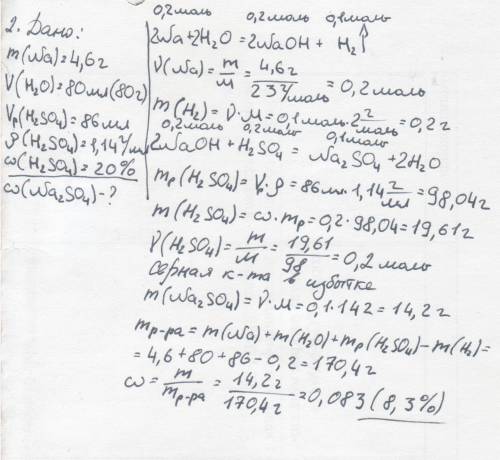 2. Дано:
m(Na)=4,6г
V(H₂O)=80мл(80г)
Vp(H₂SO₄)=86мл
ρ(H₂SO₄)=1,14г/мл
ω(H₂SO₄)=20%
ω(Na₂SO₄)-?
0,2моль 0,2моль 0,1моль
2Na+2H₂O=2NaOH+H₂↑
ν(Na)=m/M=4,6г/23г/моль=0,2моль
m(H₂)=ν·M=0,1моль·2г/моль=0,2г
0,2моль 0,2моль 0,1моль
2NaOH+H₂SO₄=Na₂SO₄+2H₂O
mp(H₂SO₄)=Vp·ρ=86мл·1,14г/мл=98,04г
m(H₂SO₄)=ω·mp=0,2·98,04=19,61г
ν(H₂SO₄)=m/M=19,61/98=0,2моль
серная к-та в избытке
m(Na₂SO₄)=ν·M=0,1·142=14,2г
mр-ра=m(Na)+m(H₂O)+mp(H₂SO₄)-m(H₂)=
=4,6+80+86-0,2=170,4г
ω=m/mр-ра=14,2г/170,4г=0,083(8,3%)